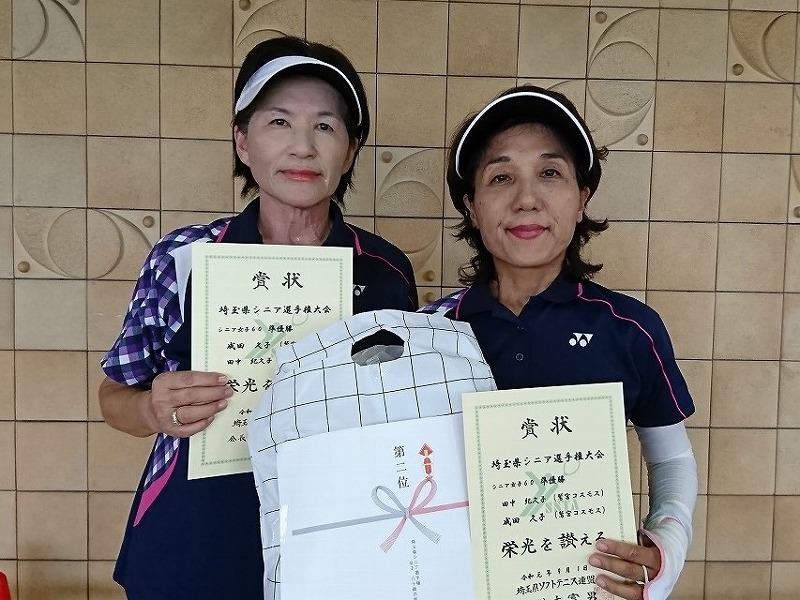 賞状
埼玉県シニア選手権大会
シニア女子60 準優勝
成田 久子
田中 紀久子
栄光を
令和
埼玉
会長
YONEX
第二位
賞状
埼玉県シニア選手権大会
シニア女子60 準優勝
田中 紀久子 (鷲宮コスモス)
成田 久子 (鷲宮コスモス)
栄光を讃える
令和元年9月1日
埼玉県ソフトテニス連盟